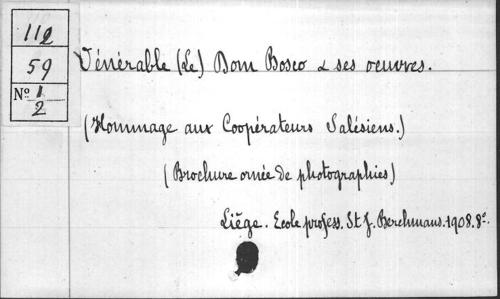 112
59
Nº 1/2
Vénérable (Le) Dom Bosco & ses oeuvres.
(Hommage aux Coopérateurs Salésiens.)
(Brochure ornée de photographies)
Liège. Ecole profess. St J. Berchmans. 1908. 8º.